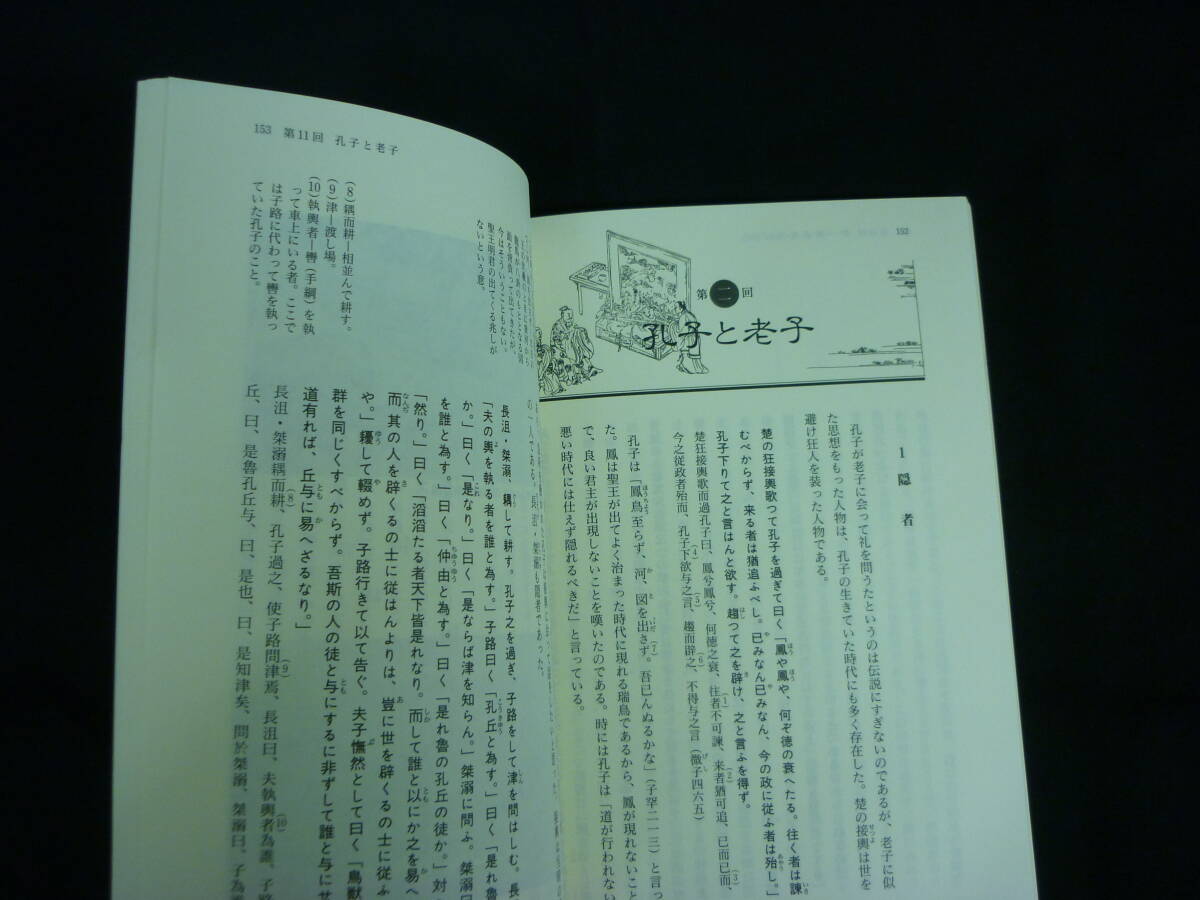 152
第二回
孔子と老子
1 隠者
孔子が老子に会って礼を問うたというのは伝説にすぎないのであるが、老子に似
た思想をもった人物は、孔子の生きていた時代にも多く存在した。楚の接輿は世を
避け狂人を装った人物である。
楚の狂接輿歌つて孔子を過ぎて曰く「鳳や鳳や、何ぞ徳の衰へたる。往く者は諫
むべからず、来る者は猶追ふべし。已みなん已みなん、今の政に従ふ者は殆し。」
孔子下りて之と言はんと欲す。趨つて之を辟け、之と言ふを得ず。
楚狂接輿歌而過孔子曰、鳳兮鳳兮、何徳之衰、往者不可諫、来者猶可追、已而已而、
今之従政者殆而、孔子下欲与之言、趨而辟之、不得与之言(微子四六五)
孔子は「鳳鳥至らず、河、図を出さず。吾已んぬるかな」(子罕二一三)と言っ
た。鳳は聖王が出てよく治まった時代に現れる瑞鳥であるから、鳳が現れないこと
で、良い君主が出現しないことを嘆いたのである。時には孔子は「道が行われない
悪い時代には仕えず隠れるべきだ」と言っている。
153 第11回 孔子と老子
今はそういうこともない。
聖王明君の出てくる兆しが
ないという意。
(8)耦而耕―相並んで耕す。
(9)津―渡し場。
(10)執輿者―轡(手綱)を執
って車上にいる者。ここで
は子路に代わって轡を執っ
ていた孔子のこと。
の一人である。長沮・桀溺も隠者であった。
長沮・桀溺、耦して耕す。孔子之を過ぎ、子路をして津を問はしむ。長
「夫の輿を執る者を誰と為す。」子路曰く「孔丘と為す。」曰く「是れ魯
か。」曰く「是なり。」曰く「是ならば津を知らん。」桀溺に問ふ。桀溺曰
を誰と為す。」曰く「仲由と為す。」曰く「是れ魯の孔丘の徒か。」対
「然り。」曰く「滔滔たる者天下皆是れなり。而して誰と以にか之を易へ
而其の人を辟くるの士に従はんよりは、豈に世を辟くるの士に従ふ
や。」耰して輟めず。子路行きて以て告ぐ。夫子憮然として曰く「鳥獣
群を同じくすべからず。吾斯の人の徒と与にするに非ずして誰と与にせ
道有れば、丘与に易へざるなり。」
長沮・桀溺耦而耕、孔子過之、使子路問津焉、長沮曰、夫執輿者為誰、子路
丘、曰、是魯孔丘与、曰、是也、曰、是知津矣、問於桀溺、桀溺曰、子為